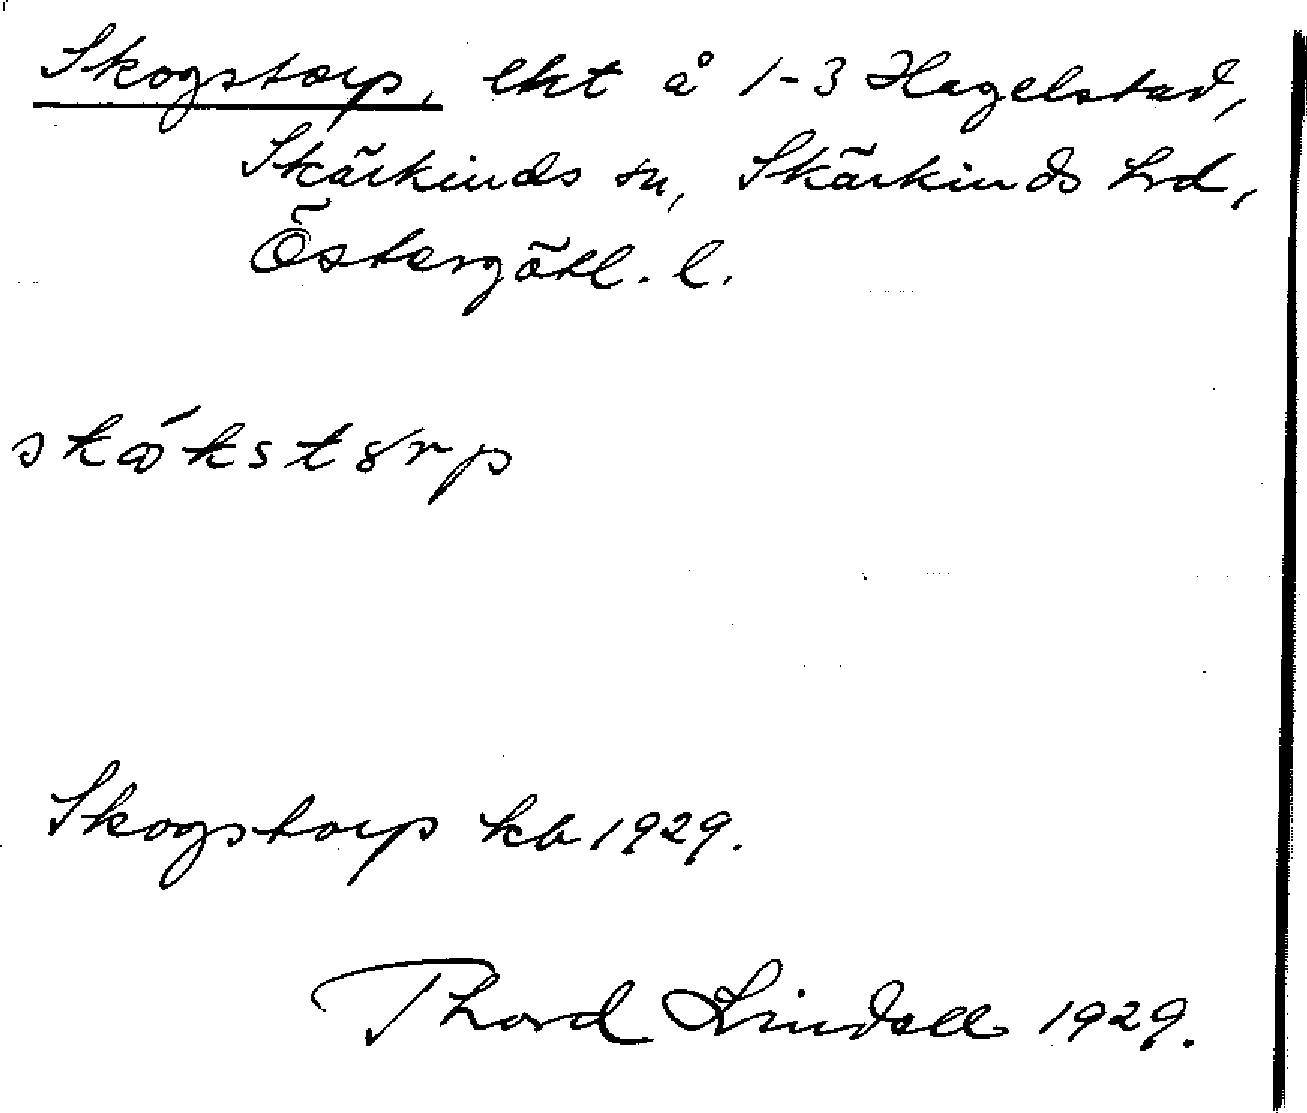 Skogstorp, lht å 1-3 Hagelstad,
Skärkinds sn, Skärkinds hrd,
Östergötl. l.
skώkstȣrp
Skogstorp kb 1929.
Thord Lindell 1929.